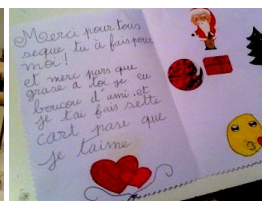 Merci pour tous
seque tu a fais pour
moi !
et merci pars que
grase a toi je eu
boucou d'ami et
je t'ai fais sette
cart parse que
je t'aime